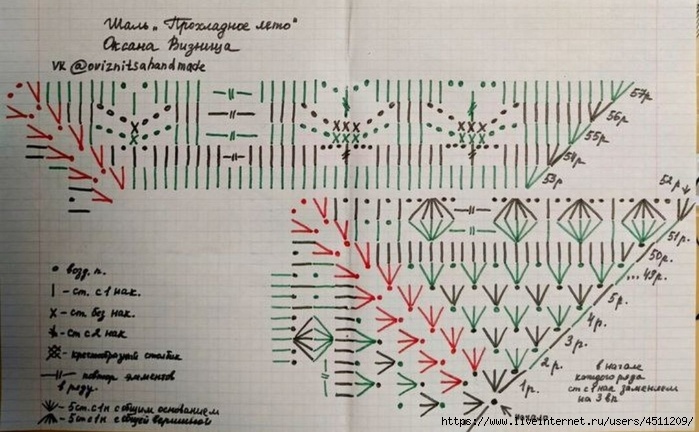 Шаль „Прохладное лето"
Оксана Визница
vk @oviznitsahandmade
57р.
56р.
55р.
54р.
53р.
52р.
51р.
50р.
...49р.
5р.
4р.
3р.
2р.
1р.
• возд. п.
| - ст. с 1 нак.
x - ст. без нак.
- ст с 2 нак
- крестообразный столбик
-//- - повтор элементов
в ряду.
- 5 ст. с 1 н с общим основанием
- 5 ст с 1 н с общей вершиной
в начале
каждого ряда
ст с 1 нак заменяем
на 3 вп
начало
https://www.liveinternet.ru/users/4511209/